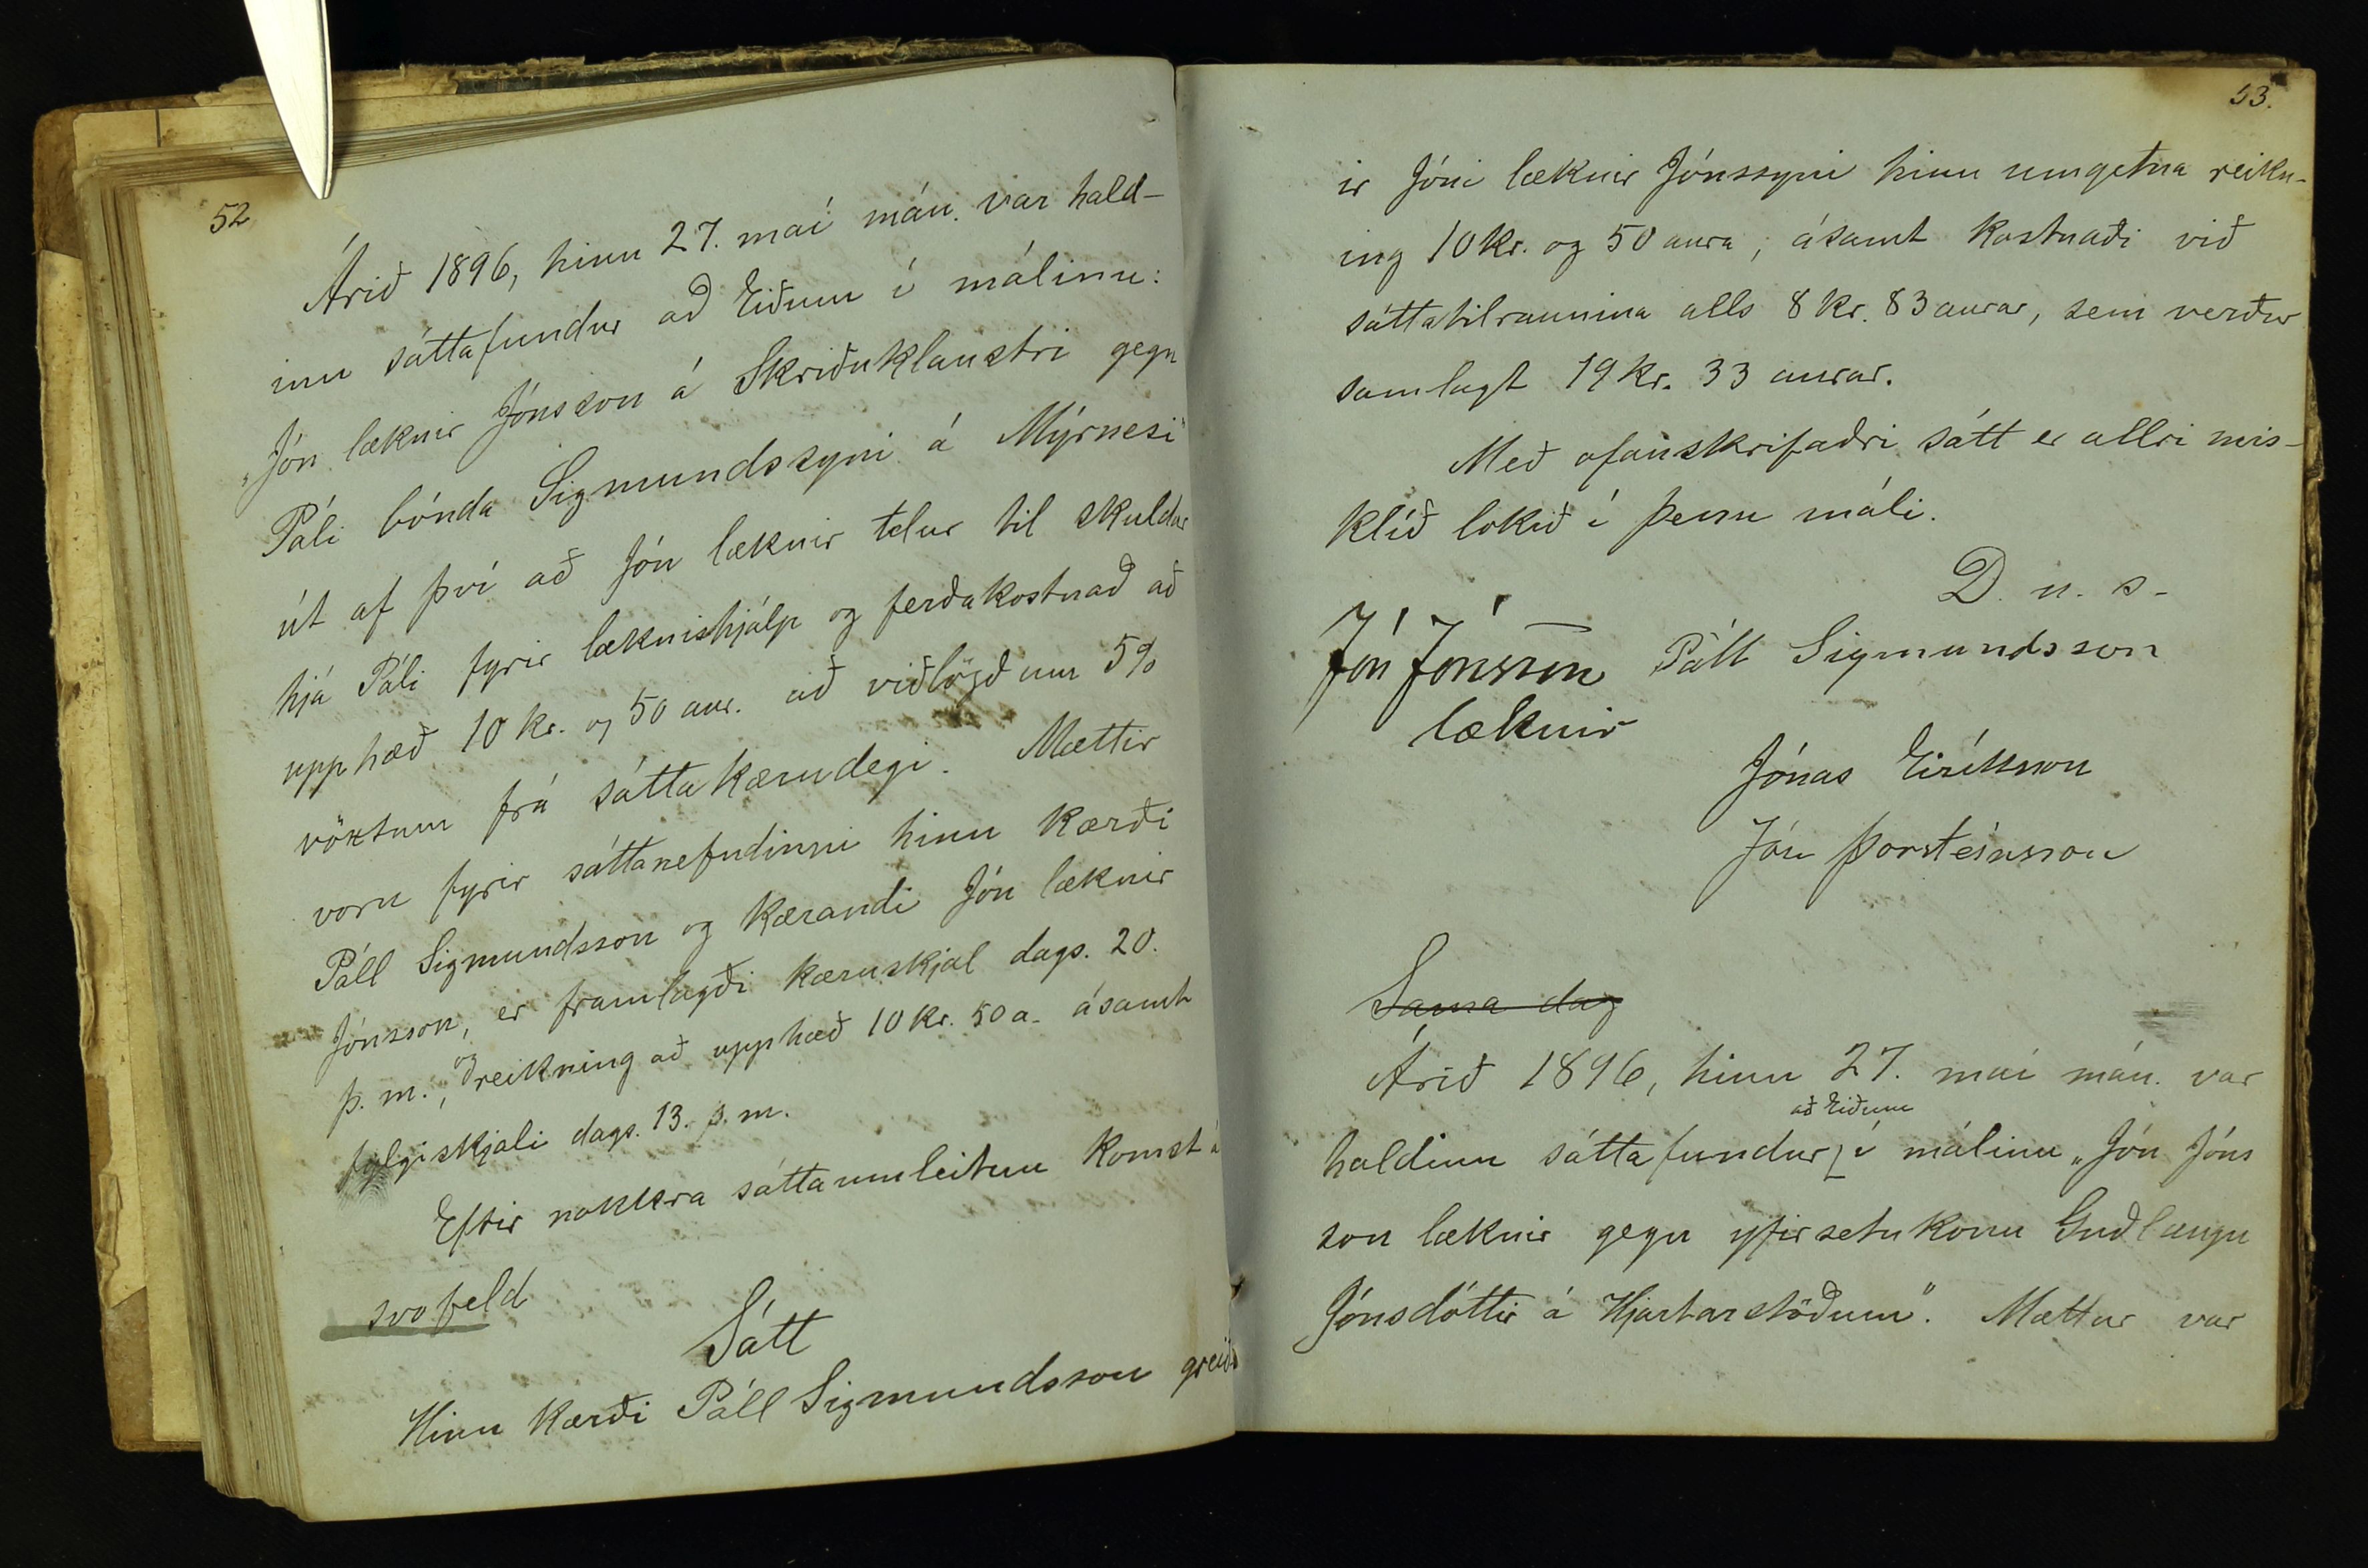 52
Árið 1896, hinn 27. maí mán. var hald-
inn sáttafundur að Eiðum í málinu:
„Jón læknir Jónsson á Skriðuklaustri gegn
Páli bónda Sigmundssyni á Mýrnesi"
út af því að Jón læknir telur til skuldar
hjá Páli fyrir læknishjálp og ferðakostnað að
upphæð 10 kr. og 50 aur. að viðlögðum 5%
vöxtum frá sáttakærudegi. Mættir
voru fyrir sáttanefndinni hinn kærði
Páll Sigmundsson og kærandi Jón læknir
Jónsson, er framlagði kæruskjal dags. 20.
þ. m., og reikning að upphæð 10 kr. 50 a. ásamt
fylgiskjali dags. 13. þ. m.
Eftir nokkra sáttaumleitun komst á
svofeld
Sátt
Hinn kærði Páll Sigmundsson greið
53.
ir Jóni læknir Jónssyni hinn umgetna reikn-
ing 10 kr. og 50 aura, ásamt kostnaði við
sáttatilraunina alls 8 kr. 83 aurar, sem verður
samlagt 19 kr. 33 aurar.
Með ofanskrifaðri sátt er allri mis-
klíð lokið í þessu máli.
D. u. s.
Jón Jónsson Páll Sigmundsson
læknir
Jónas Eiríksson
Jón Þorsteinsson
Sama dag
Árið 1896, hinn 27. maí mán. var
að Eiðum
haldinn sáttafundur í málinu „Jón Jóns
son læknir gegn yfirsetukonu Guðlaugu
Jónsdóttir á Hjartarstöðum". Mættur var